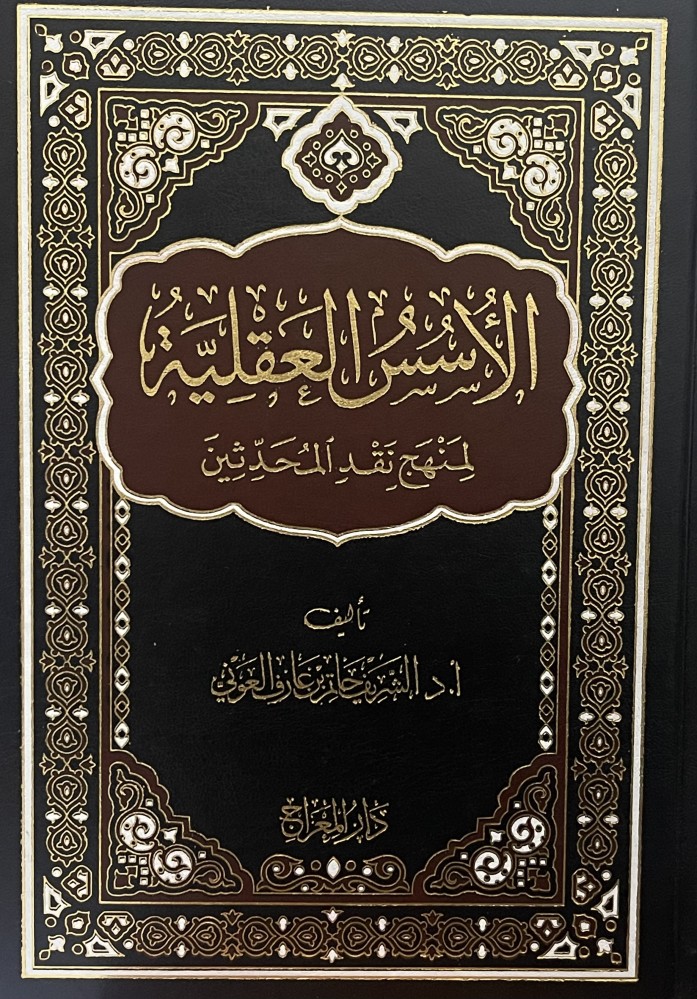 الأُسُسُ العَقْلِيَّةُ
لِمَنْهَجِ نَقْدِ المُحَدِّثِينَ
تأليف
أ.د الشريف حاتم بن عارف العوني
دَارُ المِعْرَاجِ